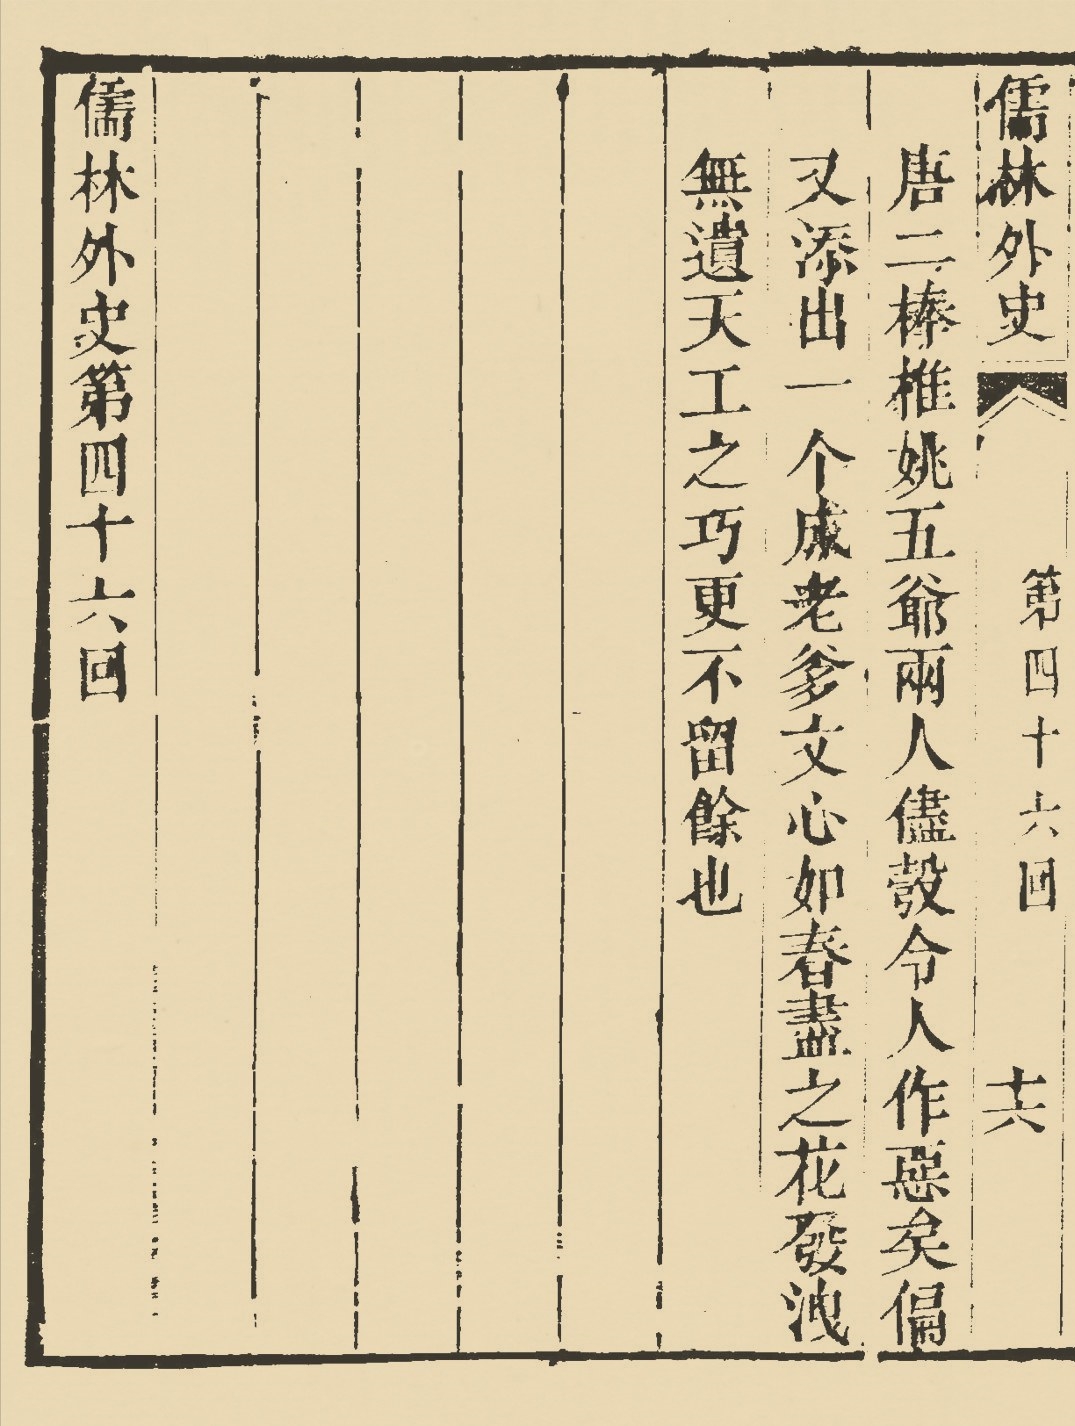 儒林外史 第四十六回 十六
唐二棒椎姚五爺兩人儘彀令人作惡矣偏
又添出一个成老爹文心如春盡之花發洩
無遺天工之巧更不留餘也
儒林外史第四十六回